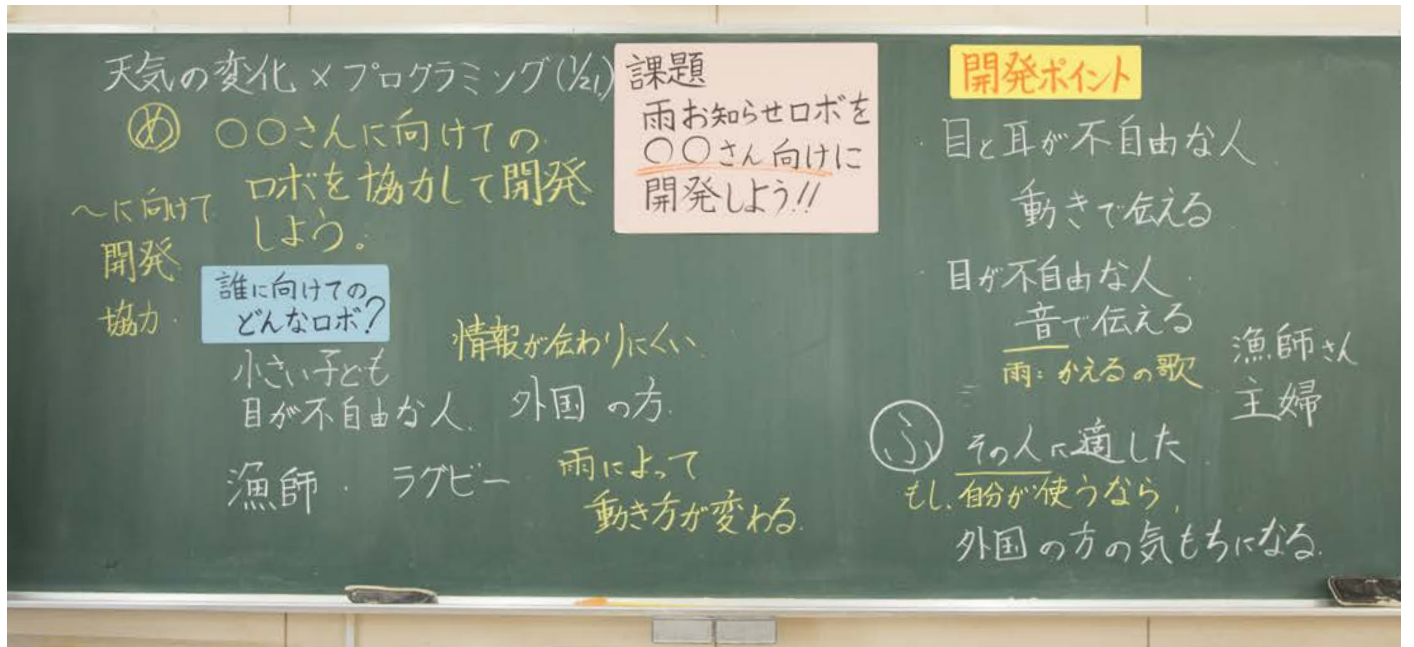 天気の変化×プログラミング(1/21)
め ○○さんに向けての
ロボを協力して開発
しよう。
〜に向けて
開発
協力
誰に向けての
どんなロボ?
小さい子ども
目が不自由な人
情報が伝わりにくい
外国の方
漁師・ラグビー
雨によって
動き方が変わる
課題
雨お知らせロボを
○○さん向けに
開発しよう!!
開発ポイント
・目と耳が不自由な人
動きで伝える
・目が不自由な人
音で伝える
雨:かえるの歌
漁師さん
主婦
ふ その人に適した
もし、自分が使うなら、
外国の方の気もちになる.